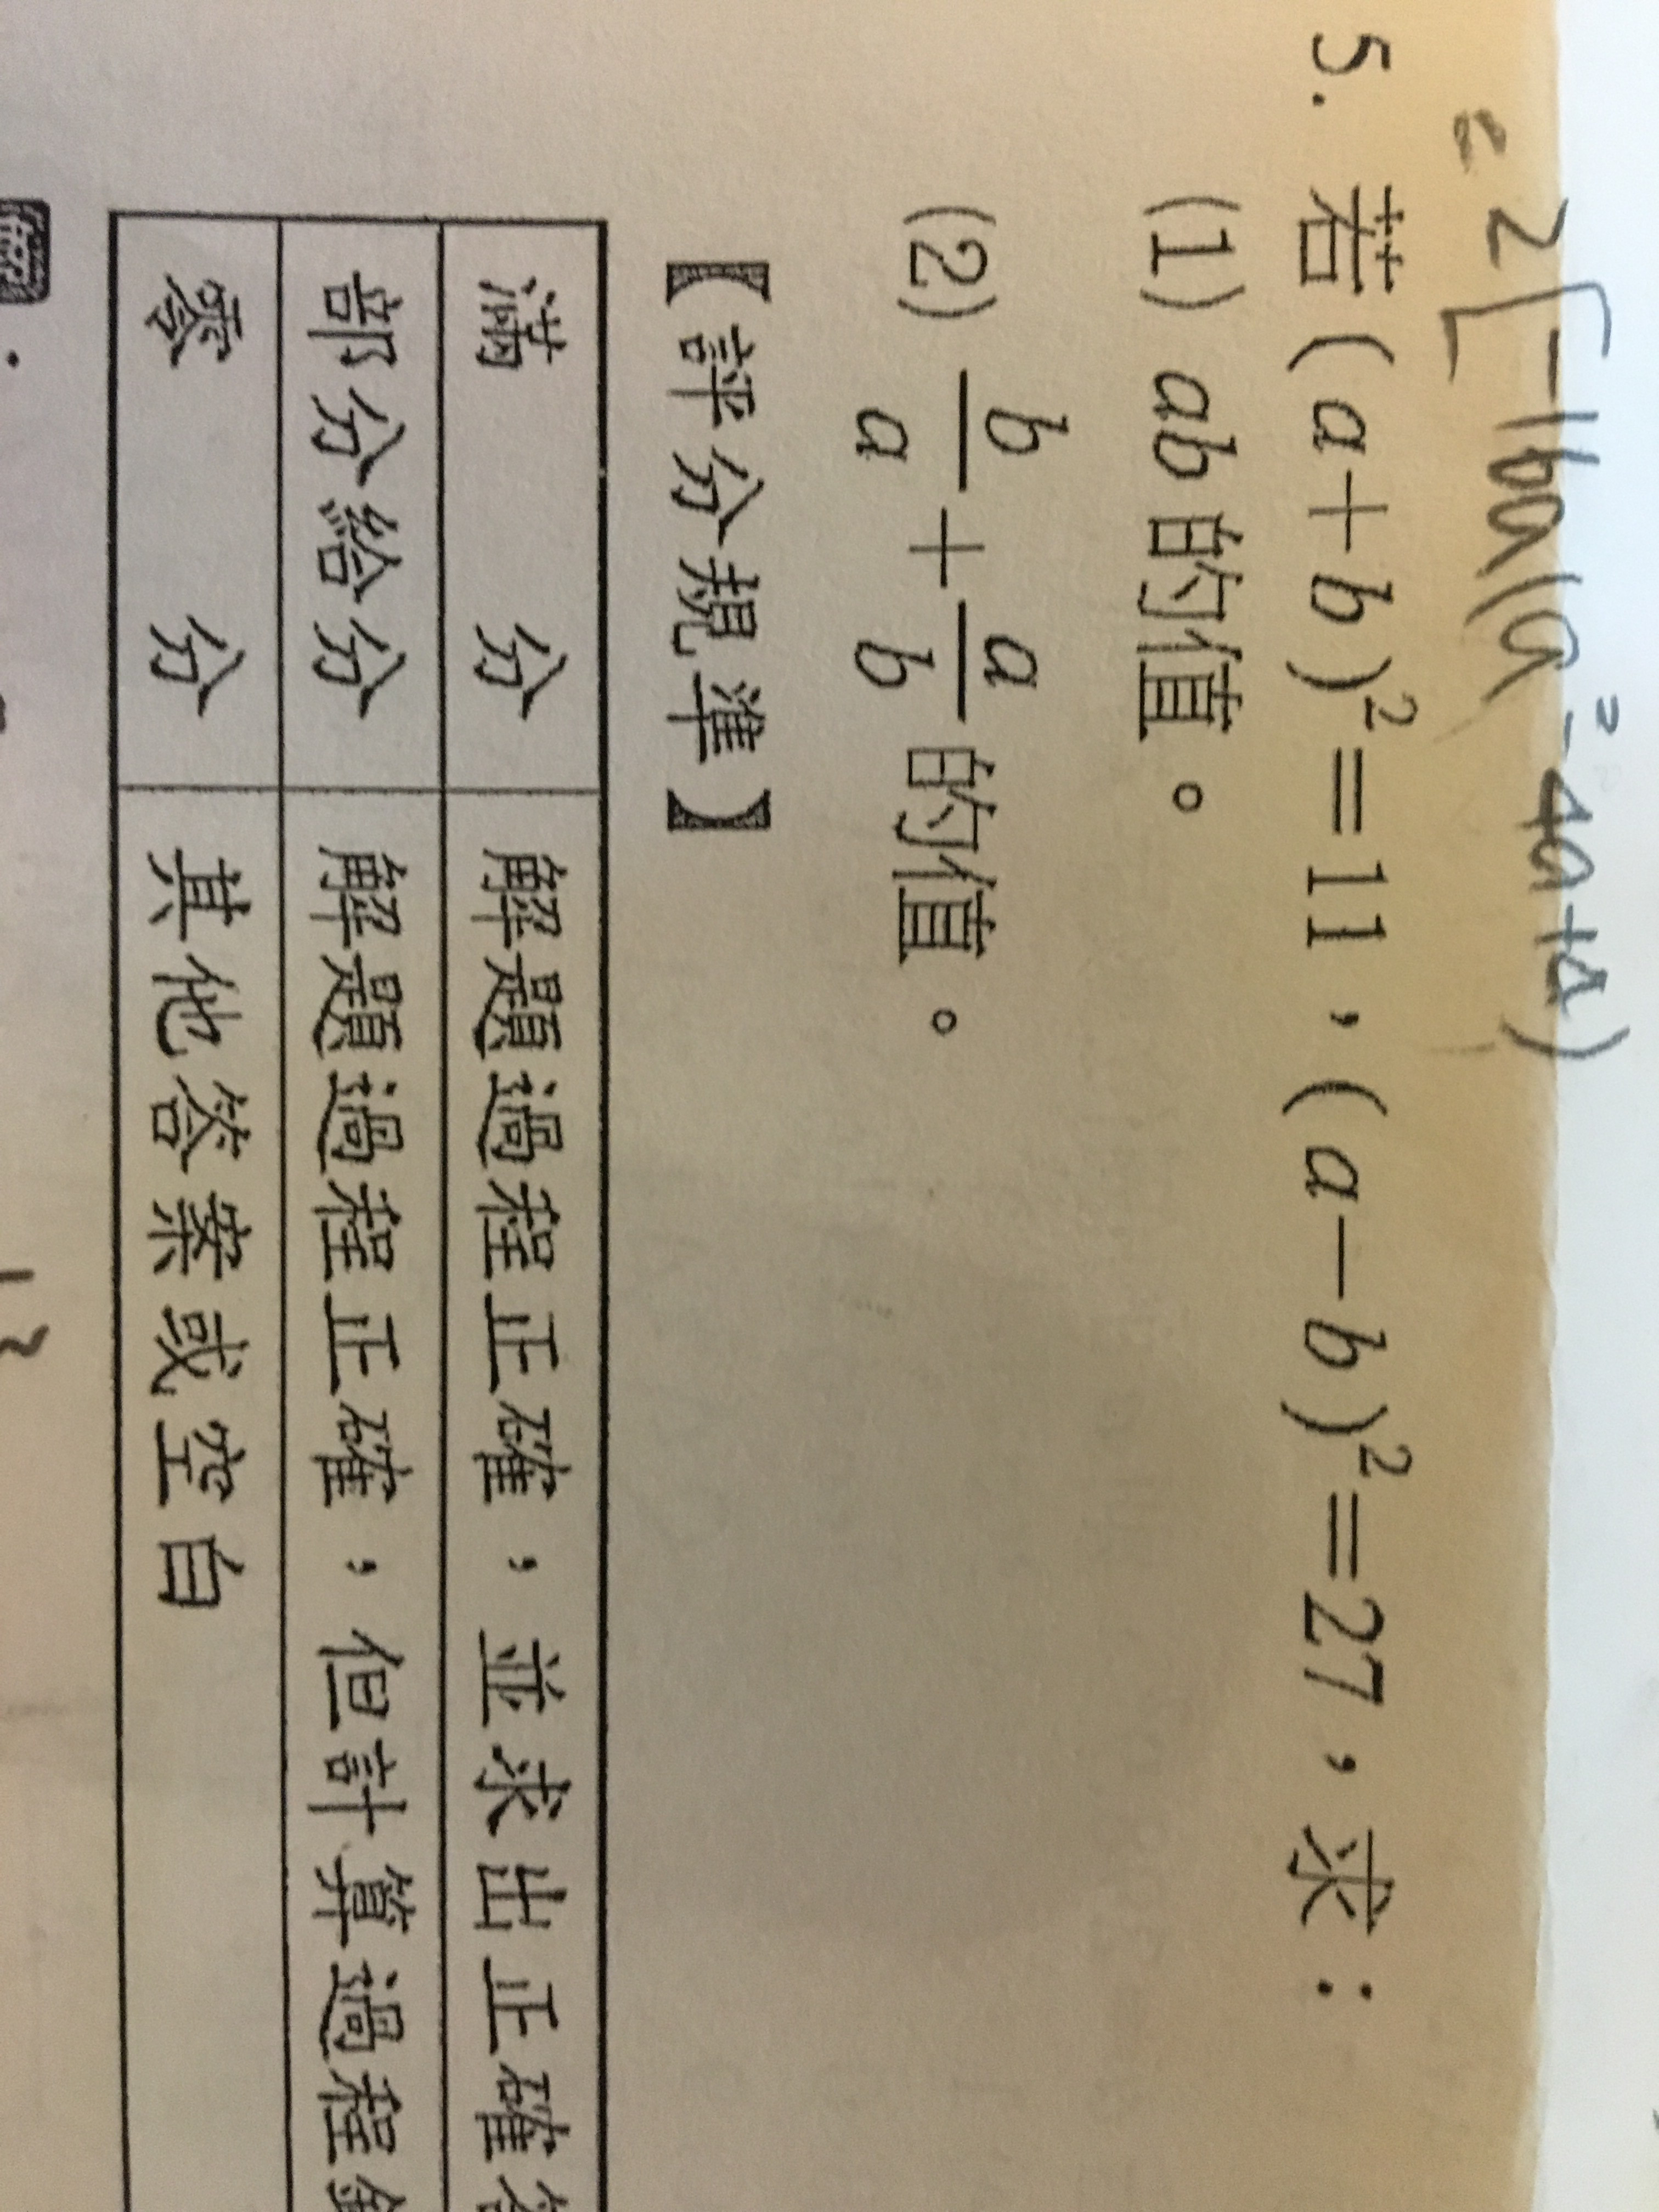 = 2[-16a(a²-4a+a)
5. 若(a+b)²=11，(a-b)²=27，求：
(1) ab的值。
(2) b/a + a/b 的值。
【評分規準】
滿分 解題過程正確，並求出正確答
部分給分 解題過程正確，但計算過程錯
零分 其他答案或空白